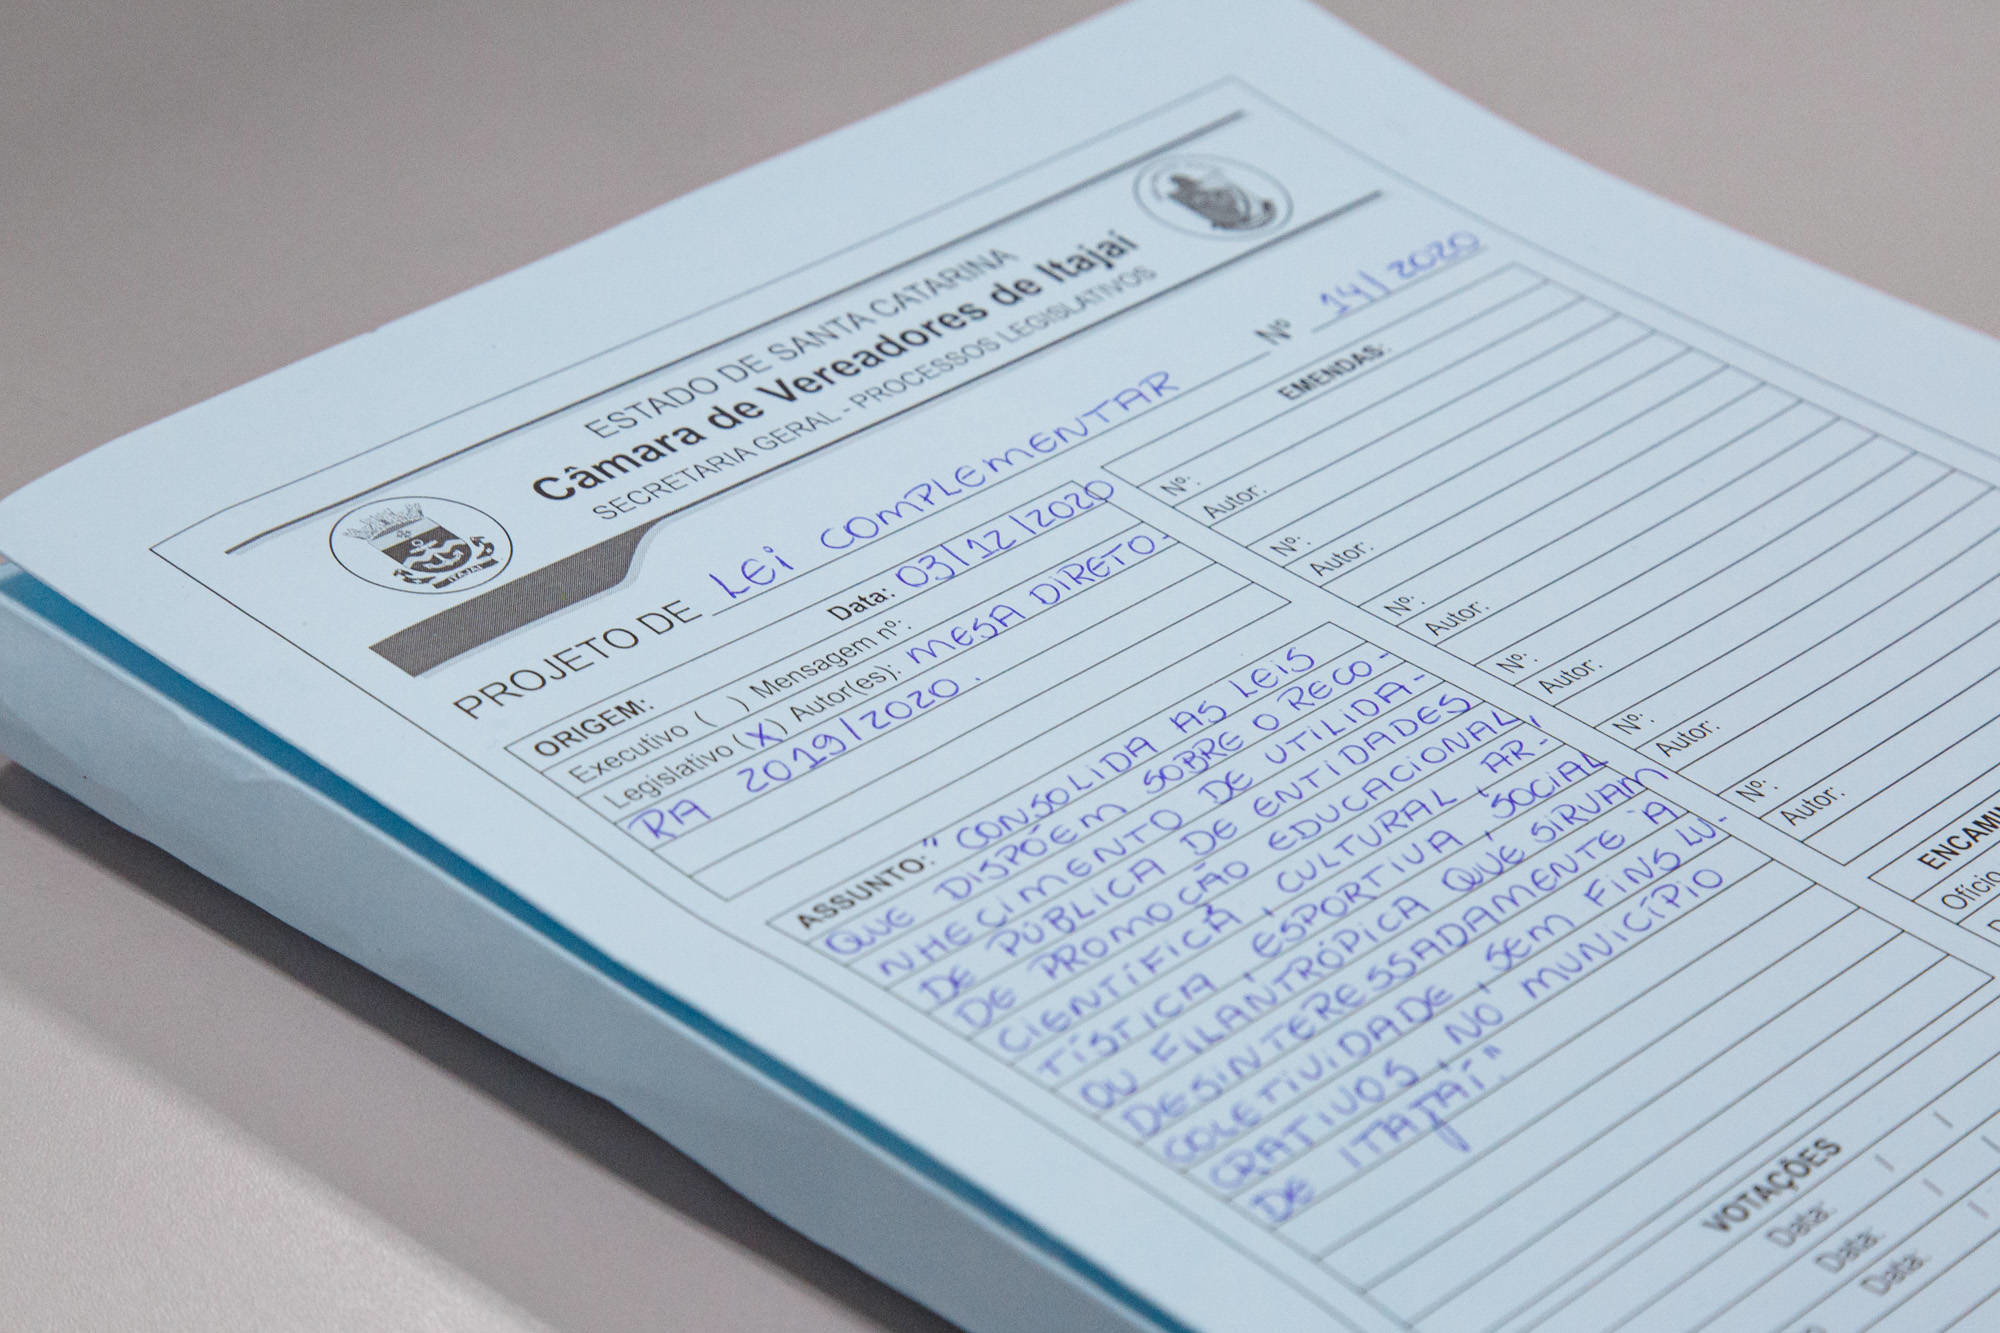 ESTADO DE SANTA CATARINA
Câmara de Vereadores de Itajaí
SECRETARIA GERAL - PROCESSOS LEGISLATIVOS
ITAJAÍ
PROJETO DE LEI COMPLEMENTAR Nº 14/2020
ORIGEM: Data: 03/12/2020
Executivo ( ) Mensagem nº:
Legislativo (X) Autor(es): MESA DIRETO-
RA 2019/2020.
ASSUNTO: "CONSOLIDA AS LEIS
QUE DISPÕEM SOBRE O RECO-
NHECIMENTO DE UTILIDA-
DE PÚBLICA DE ENTIDADES
DE PROMOÇÃO EDUCACIONAL,
CIENTÍFICA, CULTURAL, AR-
TÍSTICA, ESPORTIVA, SOCIAL
OU FILANTRÓPICA QUE SIRVAM
DESINTERESSADAMENTE À
COLETIVIDADE, SEM FINS LU-
CRATIVOS, NO MUNICÍPIO
DE ITAJAÍ."
EMENDAS:
Nº:
Autor:
Nº:
Autor:
Nº:
Autor:
Nº:
Autor:
Nº:
Autor:
Nº:
Autor:
ENCAMI
Ofício
VOTAÇÕES
Data: / /
Data: / /
Data: / /